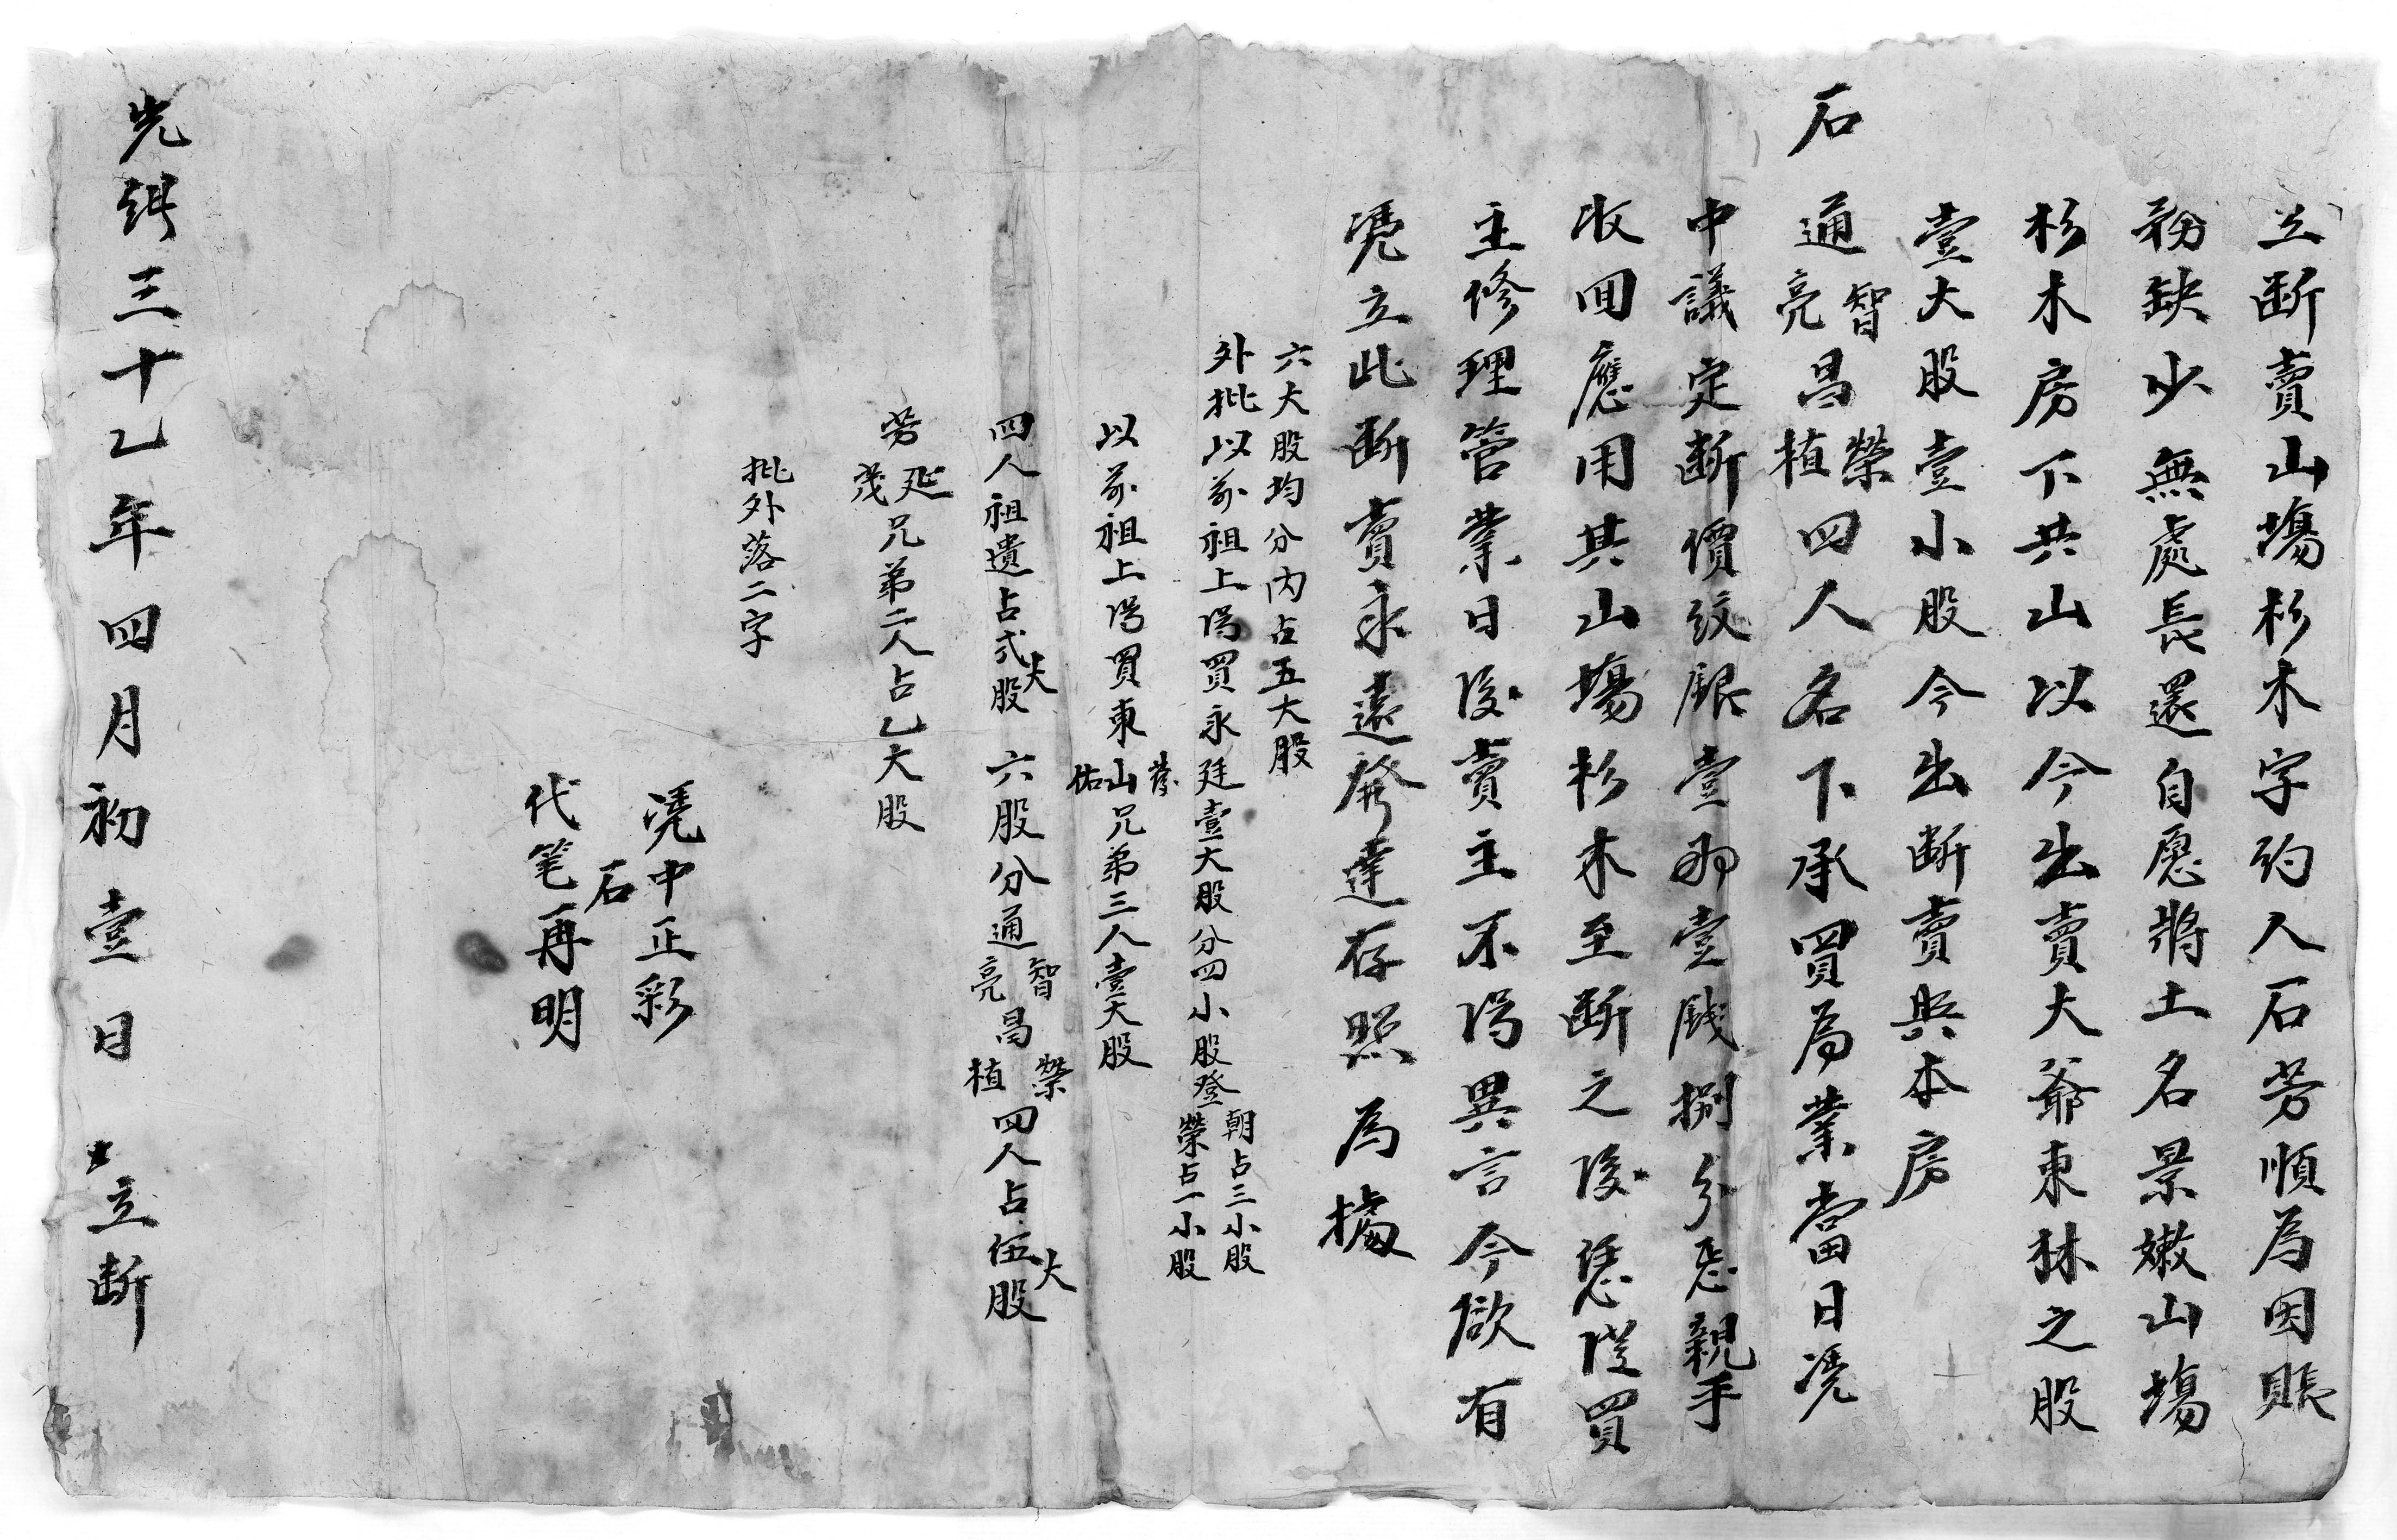 立断賣山塲杉木字約人石芳順為因賬
務缺少無處長還自愿將土名景嫩山塲
杉木房下共山以今出賣大爺東林之股
壹大股壹小股今出断賣與本房
石通智亮昌榮植四人名下承買為業當日凴
中議定断價紋銀壹両壹錢捌分悉親手
收回應用其山塲杉木至断之後恁從買
主修理管業日後賣主不得異言今欲有
凴立此断賣永遠發達存照為據
六大股均分內占五大股
外批以前祖上得買永廷壹大股分四小股登朝占三小股榮占一小股
以前祖上得買東山佑兄弟三人壹大股
四人祖遺占弍大股 六股分通智亮昌榮植四人占伍大股
芳延茂兄弟二人占乙大股
批外落二字
凴中正彩
石
代笔再明
光緒三十乙年四月初壹日 立断